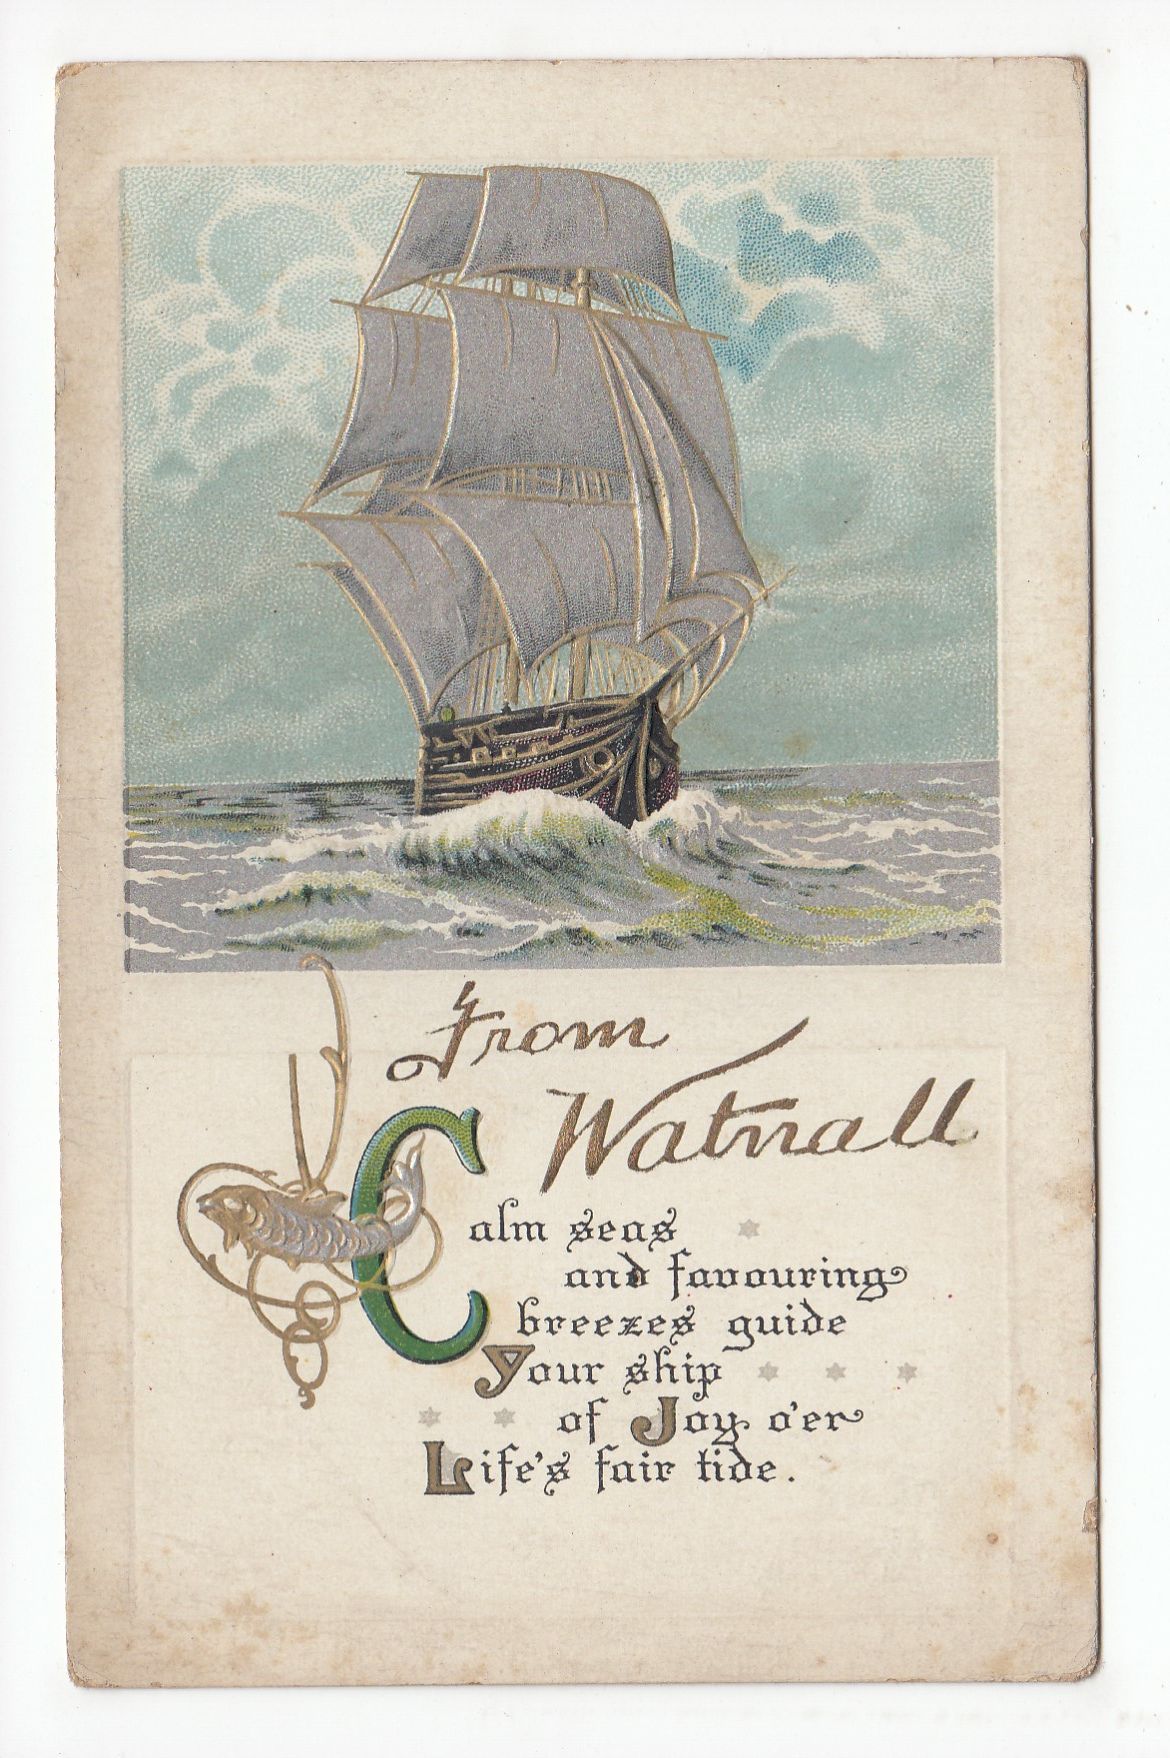 From
Watnall
Calm seas
and favouring
breezes guide
Your ship
of Joy o'er
Life's fair tide.